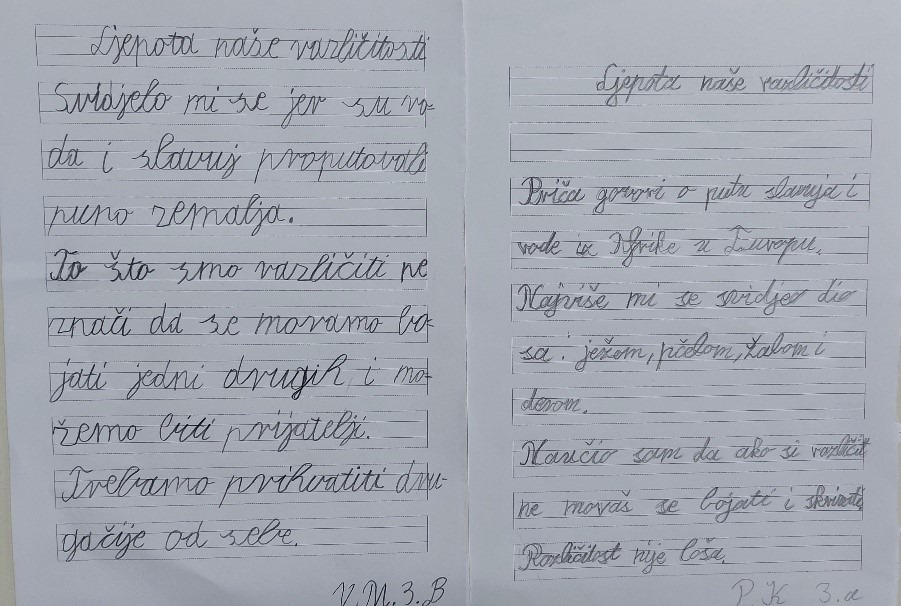 Ljepota naše različitosti
Svidjelo mi se jer su vo-
da i slavuj proputovali
puno zemalja.
To što smo različiti ne
znači da se moramo bo-
jati jedni drugih i mo-
žemo biti prijatelji.
Trebamo prihvatiti dru-
gačije od sebe.
V.M.3.B
Ljepota naše različitosti
Priča govori o putu slavuja i
vode iz Afrike u Europu.
Najviše mi se svidjeo dio
sa i ježem, pčelom, žabom i
Naučio sam da ako si različit
ne moraš se bojati i skrivati
Različitost nije loša.
P.K 3.a